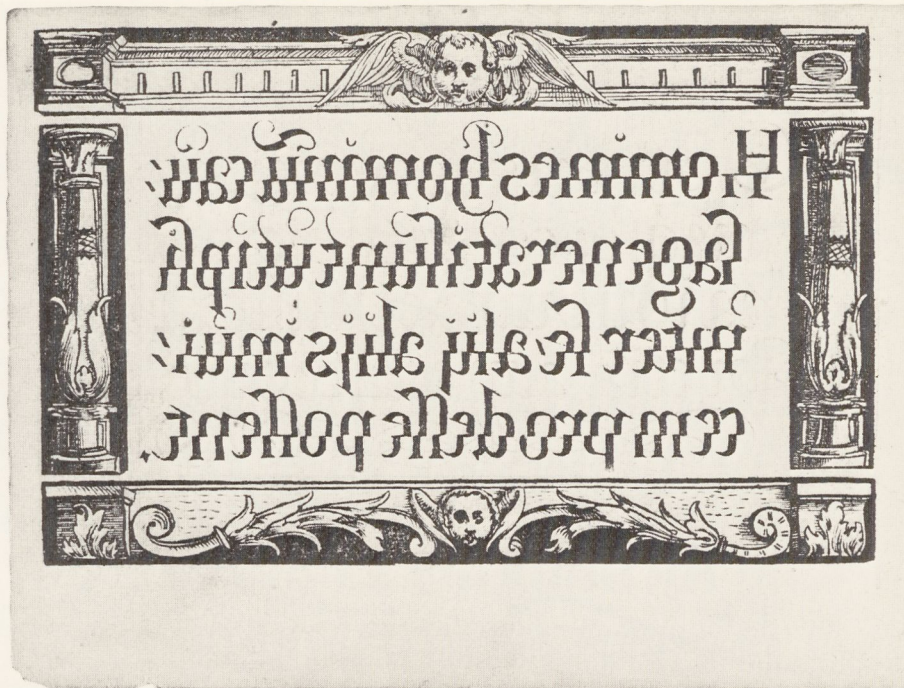 Homines hominũ cau-
ſa generati ſunt ut ipſi
inter ſe, alij alijs inui-
cem prodeſſe poſſent.